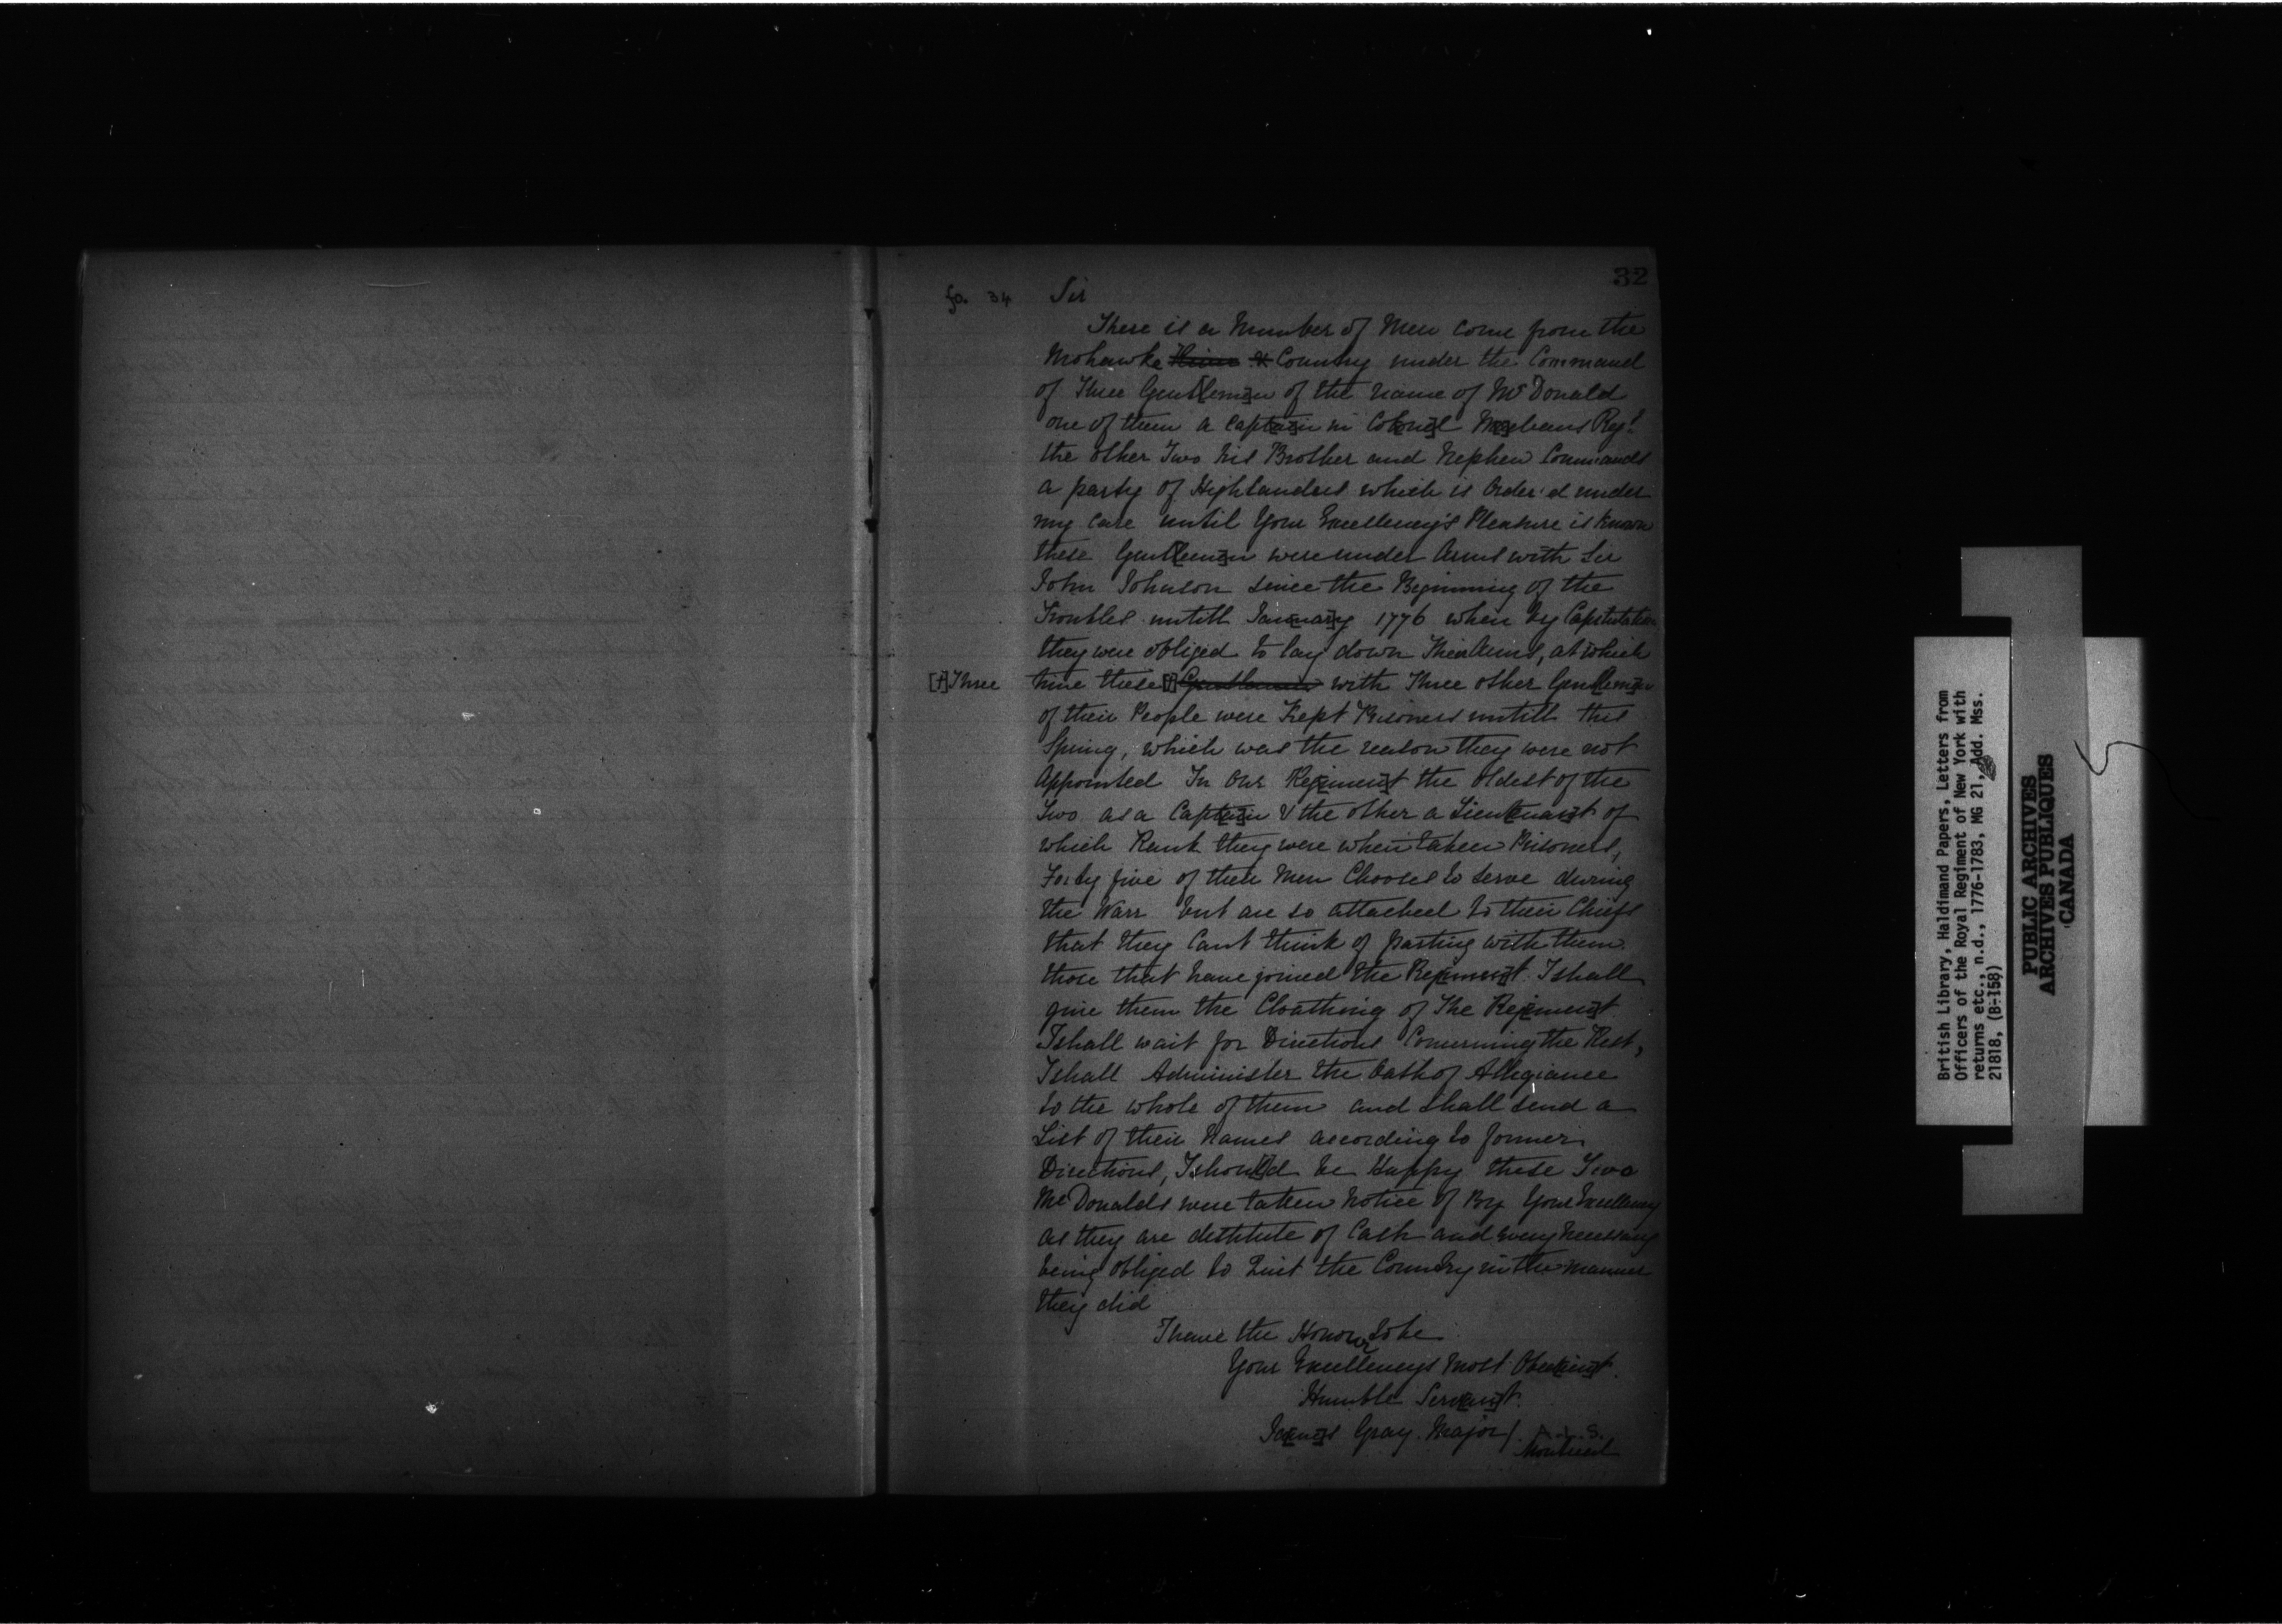 32
fo. 34 Sir
There is a Number of Men come from the
Mohawke River & Country under the Command
of Three Gent[lem]n of the name of McDonald
one of them a Capt[ai]n in Col[one]l M[ac]leans Regt
the other Two his Brother and Nephew Commands
a party of Highlanders which is Order'd under
my Care until Your Excellency's Pleasure is known
these Gent[leme]n were under Arms with Sir
John Johnson since the Beginning of the
Troubles untill Jan[uar]y 1776 when by Capitulation
they were obliged to lay down Their Arms, at which
[+] Three time these [+] Gentlemen with Three other Gen[tlem]en
of their People were Kept Prisoners untill this
Spring, which was the reason they were not
Appointed In Our Reg[imen]t the oldest of the
Two as a Capt[ai]n & the other a Lieu[tenan]t of
which Rank they were when taken Prisoners,
Forty five of their Men Chooses to serve during
the Warr but are so attached to their Chiefs
that they Cant think of parting with them
those that have joined the Reg[imen]t I shall
give them the Cloathing of The Reg[imen]t
I shall wait for Directions Concerning the Rest,
I shall Administer the Oath of Allegiance
to the whole of them and shall send a
List of their Names according to former
Directions, I shou[l]d be Happy these Two
McDonalds were taken Notice of By Your Excellency
as they are destitute of Cash and every Necessary
being obliged to Quit the Country in the manner
they did
I have the Honour to be
Your Excellencys Most Obed[ien]t
Humble Serv[an]t
Ja[me]s Gray Major/. A.L.S.
Montreal
British Library, Haldimand Papers, Letters from
Officers of the Royal Regiment of New York with
returns etc., n.d., 1776-1783, MG 21, Add. Mss.
21818, (B-158)
PUBLIC ARCHIVES
ARCHIVES PUBLIQUES
CANADA